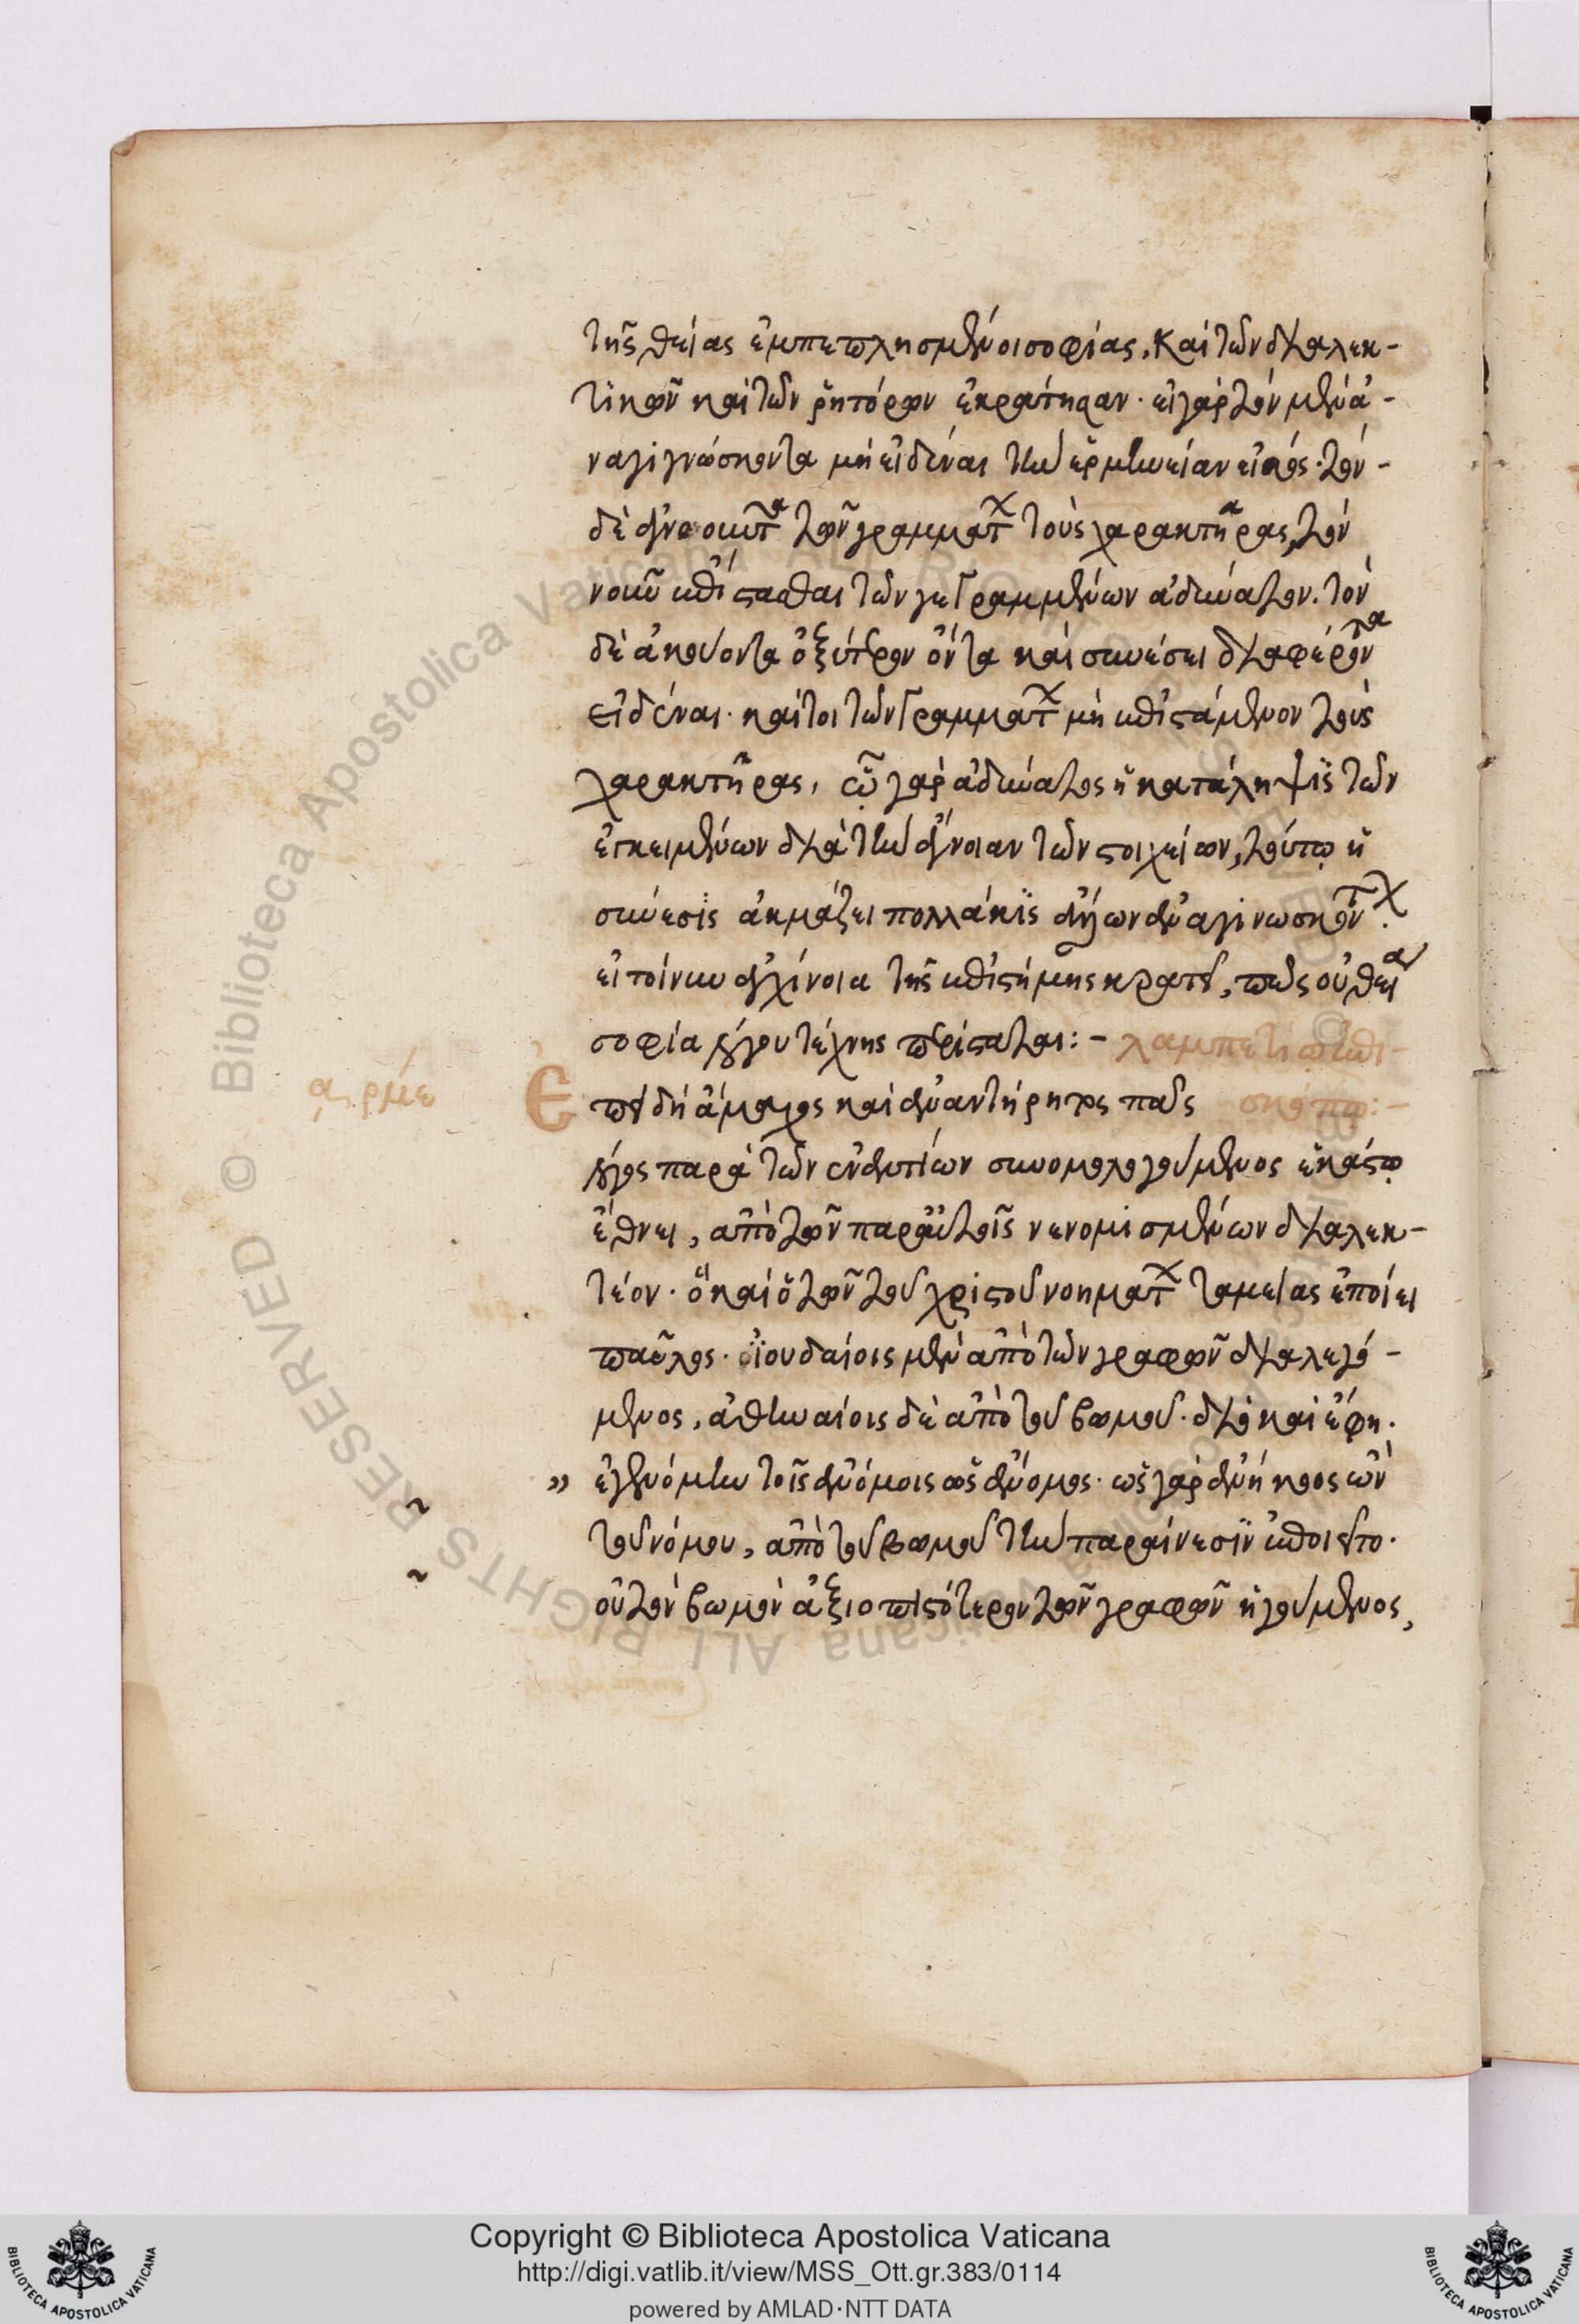 τῆς θείας ἐμπεπλησμένοι σοφίας, καὶ τῶν διαλεκ-
τικῶν καὶ τῶν ῥητόρων ἐκράτησαν. εἰ γὰρ τὸν μὲν ἀ-
ναγιγνώσκοντα μὴ εἰδέναι τὴν ἑρμηνείαν εἰκός. τὸν
δὲ ἀγνοοῦντα τῶν γραμμάτων τοὺς χαρακτῆρας, τὸν
νοῦν ἐπίστασθαι τῶν γεγραμμένων ἀδύνατον. τὸν
δὲ ἀκούοντα ὀξύτερον ὄντα καὶ συνέσει διαφέροντα
εἰδέναι. καίτοι τῶν γραμμάτων μὴ ἐπιστάμενον τοὺς
χαρακτῆρας, ᾧ γὰρ ἀδύνατος ἡ κατάληψις τῶν
ἐγκειμένων διὰ τὴν ἄγνοιαν τῶν στοιχείων, τούτῳ ἡ
σύνεσις ἀκμάζει πολλάκις ἀναγινωσκόντων.
εἰ τοίνυν ἀγχίνοια τῆς ἐπιστήμης κρατεῖ, πῶς οὐ θεία
σοφία λόγου τέχνης περίσταται: – λαμπετίῳ ἐπι-
Ἐπειδὴ ἄμαχος καὶ ἀναντίρρητος πᾶς σκόπῳ: –
λόγος παρὰ τῶν ἐναντίων συνομολογούμενος ἑκάστῳ
ἔθνει, ἀπὸ τῶν παρ' αὐτοῖς νενομισμένων διαλεκ-
τέον. ὃ καὶ ὁ τῶν τοῦ χριστοῦ νοημάτων ταμείας ἐποίει
παῦλος. ἰουδαίοις μὲν ἀπὸ τῶν γραφῶν διαλεγό-
μενος, ἀθηναίοις δὲ ἀπὸ τοῦ βωμοῦ. διὸ καὶ ἔφη.
" ἐγενόμην τοῖς ἀνόμοις ὡς ἄνομος. ὡς γὰρ ἀνήκοος ὢν
τοῦ νόμου, ἀπὸ τοῦ βωμοῦ τὴν παραίνεσιν ἐποιεῖτο.
οὐ τὸν βωμὸν ἀξιοπιστότερον τῶν γραφῶν ἡγούμενος,
Copyright © Biblioteca Apostolica Vaticana
http://digi.vatlib.it/view/MSS_Ott.gr.383/0114
powered by AMLAD·NTT DATA